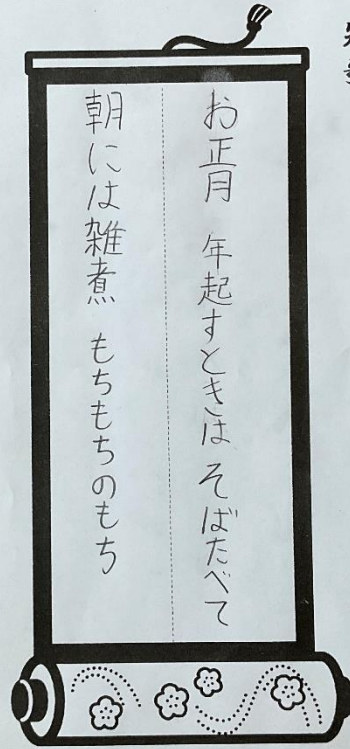 お正月 年起すときは そばたべて
朝には雑煮 もちもちのもち